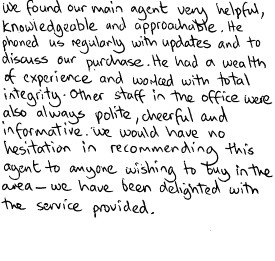 We found our main agent very helpful,
knowledgeable and approachable. He
phoned us regularly with updates and to
discuss our purchase. He had a wealth
of experience and worked with total
integrity. Other staff in the office were
also always polite, cheerful and
informative. We would have no
hesitation in recommending this
agent to anyone wishing to buy in the
area – we have been delighted with
the service provided.